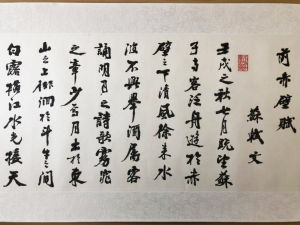 前赤壁賦
蘇軾文
壬戌之秋七月既望蘇
子与客泛舟遊於赤
壁之下清風徐来水
波不興舉酒属客
誦明月之詩歌窈窕
之章少焉月出於東
山之上徘徊於斗牛之間
白露横江水光接天